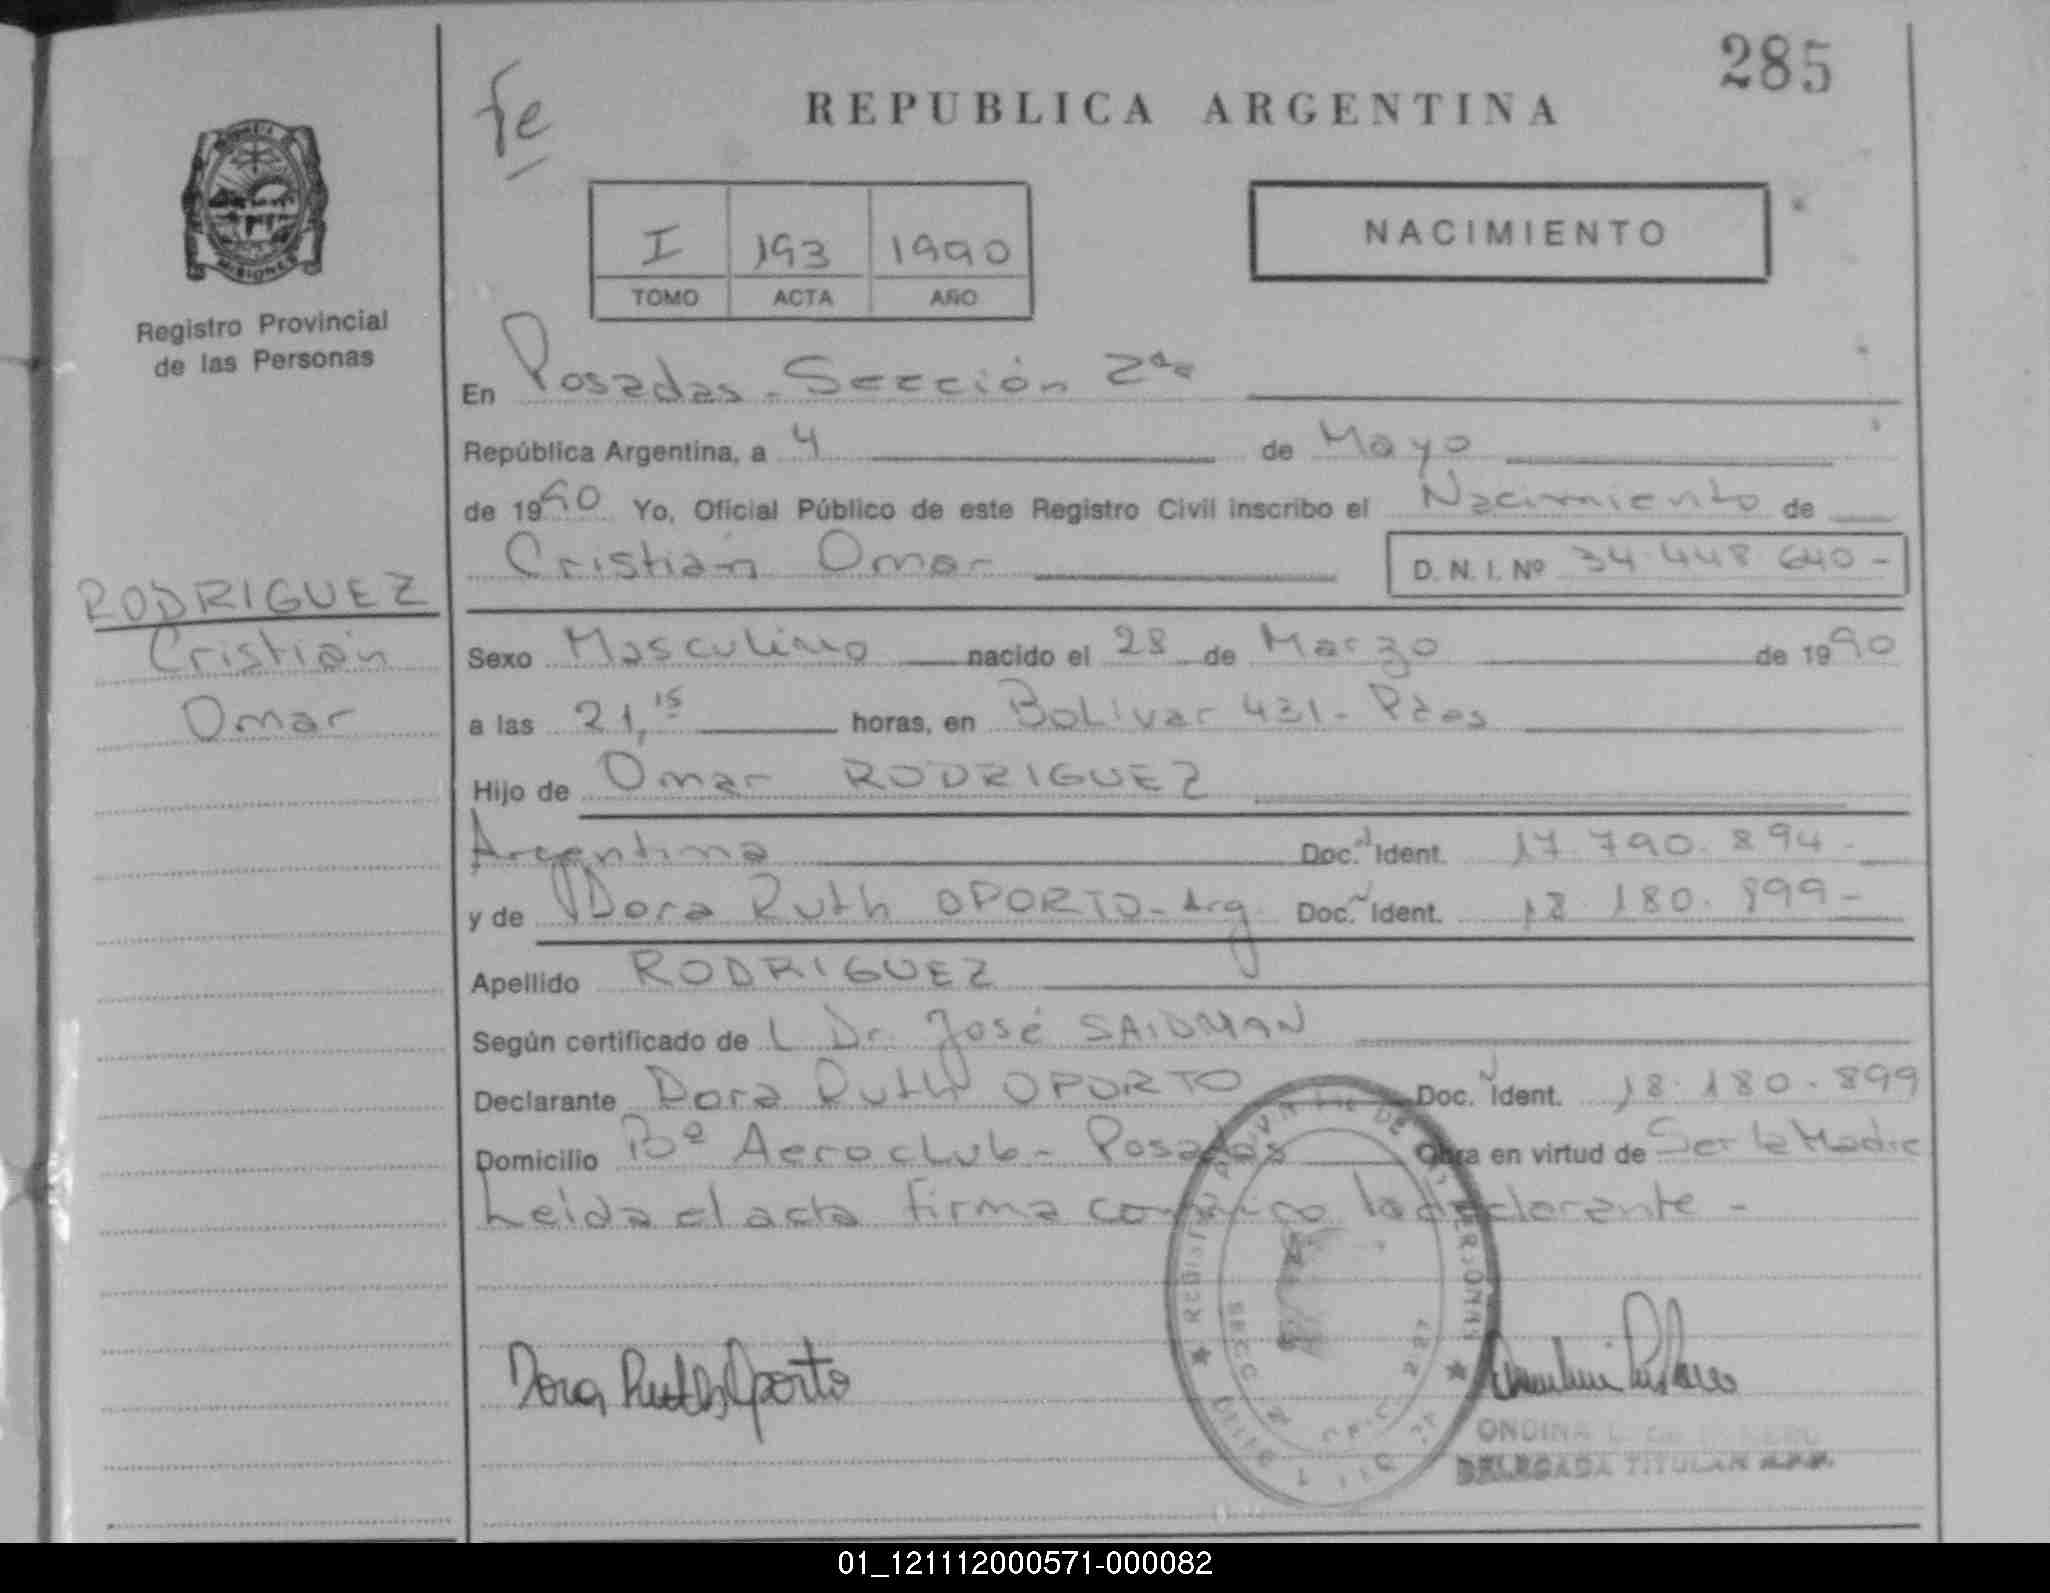 285
fe
REPUBLICA ARGENTINA
MISIONES
Registro Provincial
de las Personas
I 193 1990
TOMO ACTA AÑO
NACIMIENTO
En Posadas - Sección 2da
República Argentina, a 4 de Mayo
de 1990 Yo, Oficial Público de este Registro Civil inscribo el Nacimiento de
Cristián Omar D. N. I. Nº 34.448.640-
RODRIGUEZ
Cristián
Omar
Sexo Masculino nacido el 28 de Marzo de 1990
a las 21,15 horas, en Bolívar 431 - Pdas
Hijo de Omar RODRIGUEZ
Argentina Doc. Ident. 17.790.894-
y de Dora Ruth OPORTO - Arg. Doc. Ident. 18.180.899-
Apellido RODRIGUEZ
Según certificado de L Dr. José SAIDMAN
Declarante Dora Ruth OPORTO Doc. Ident. 18.180.899
Domicilio Bº Aeroclub - Posadas Obra en virtud de Ser la Madre
Leída el acta firma conmigo la declarante -
Dora Ruth Oporto
SECC
ONDINA
DELEGADA TITULAR R.P.P.
01_121112000571-000082